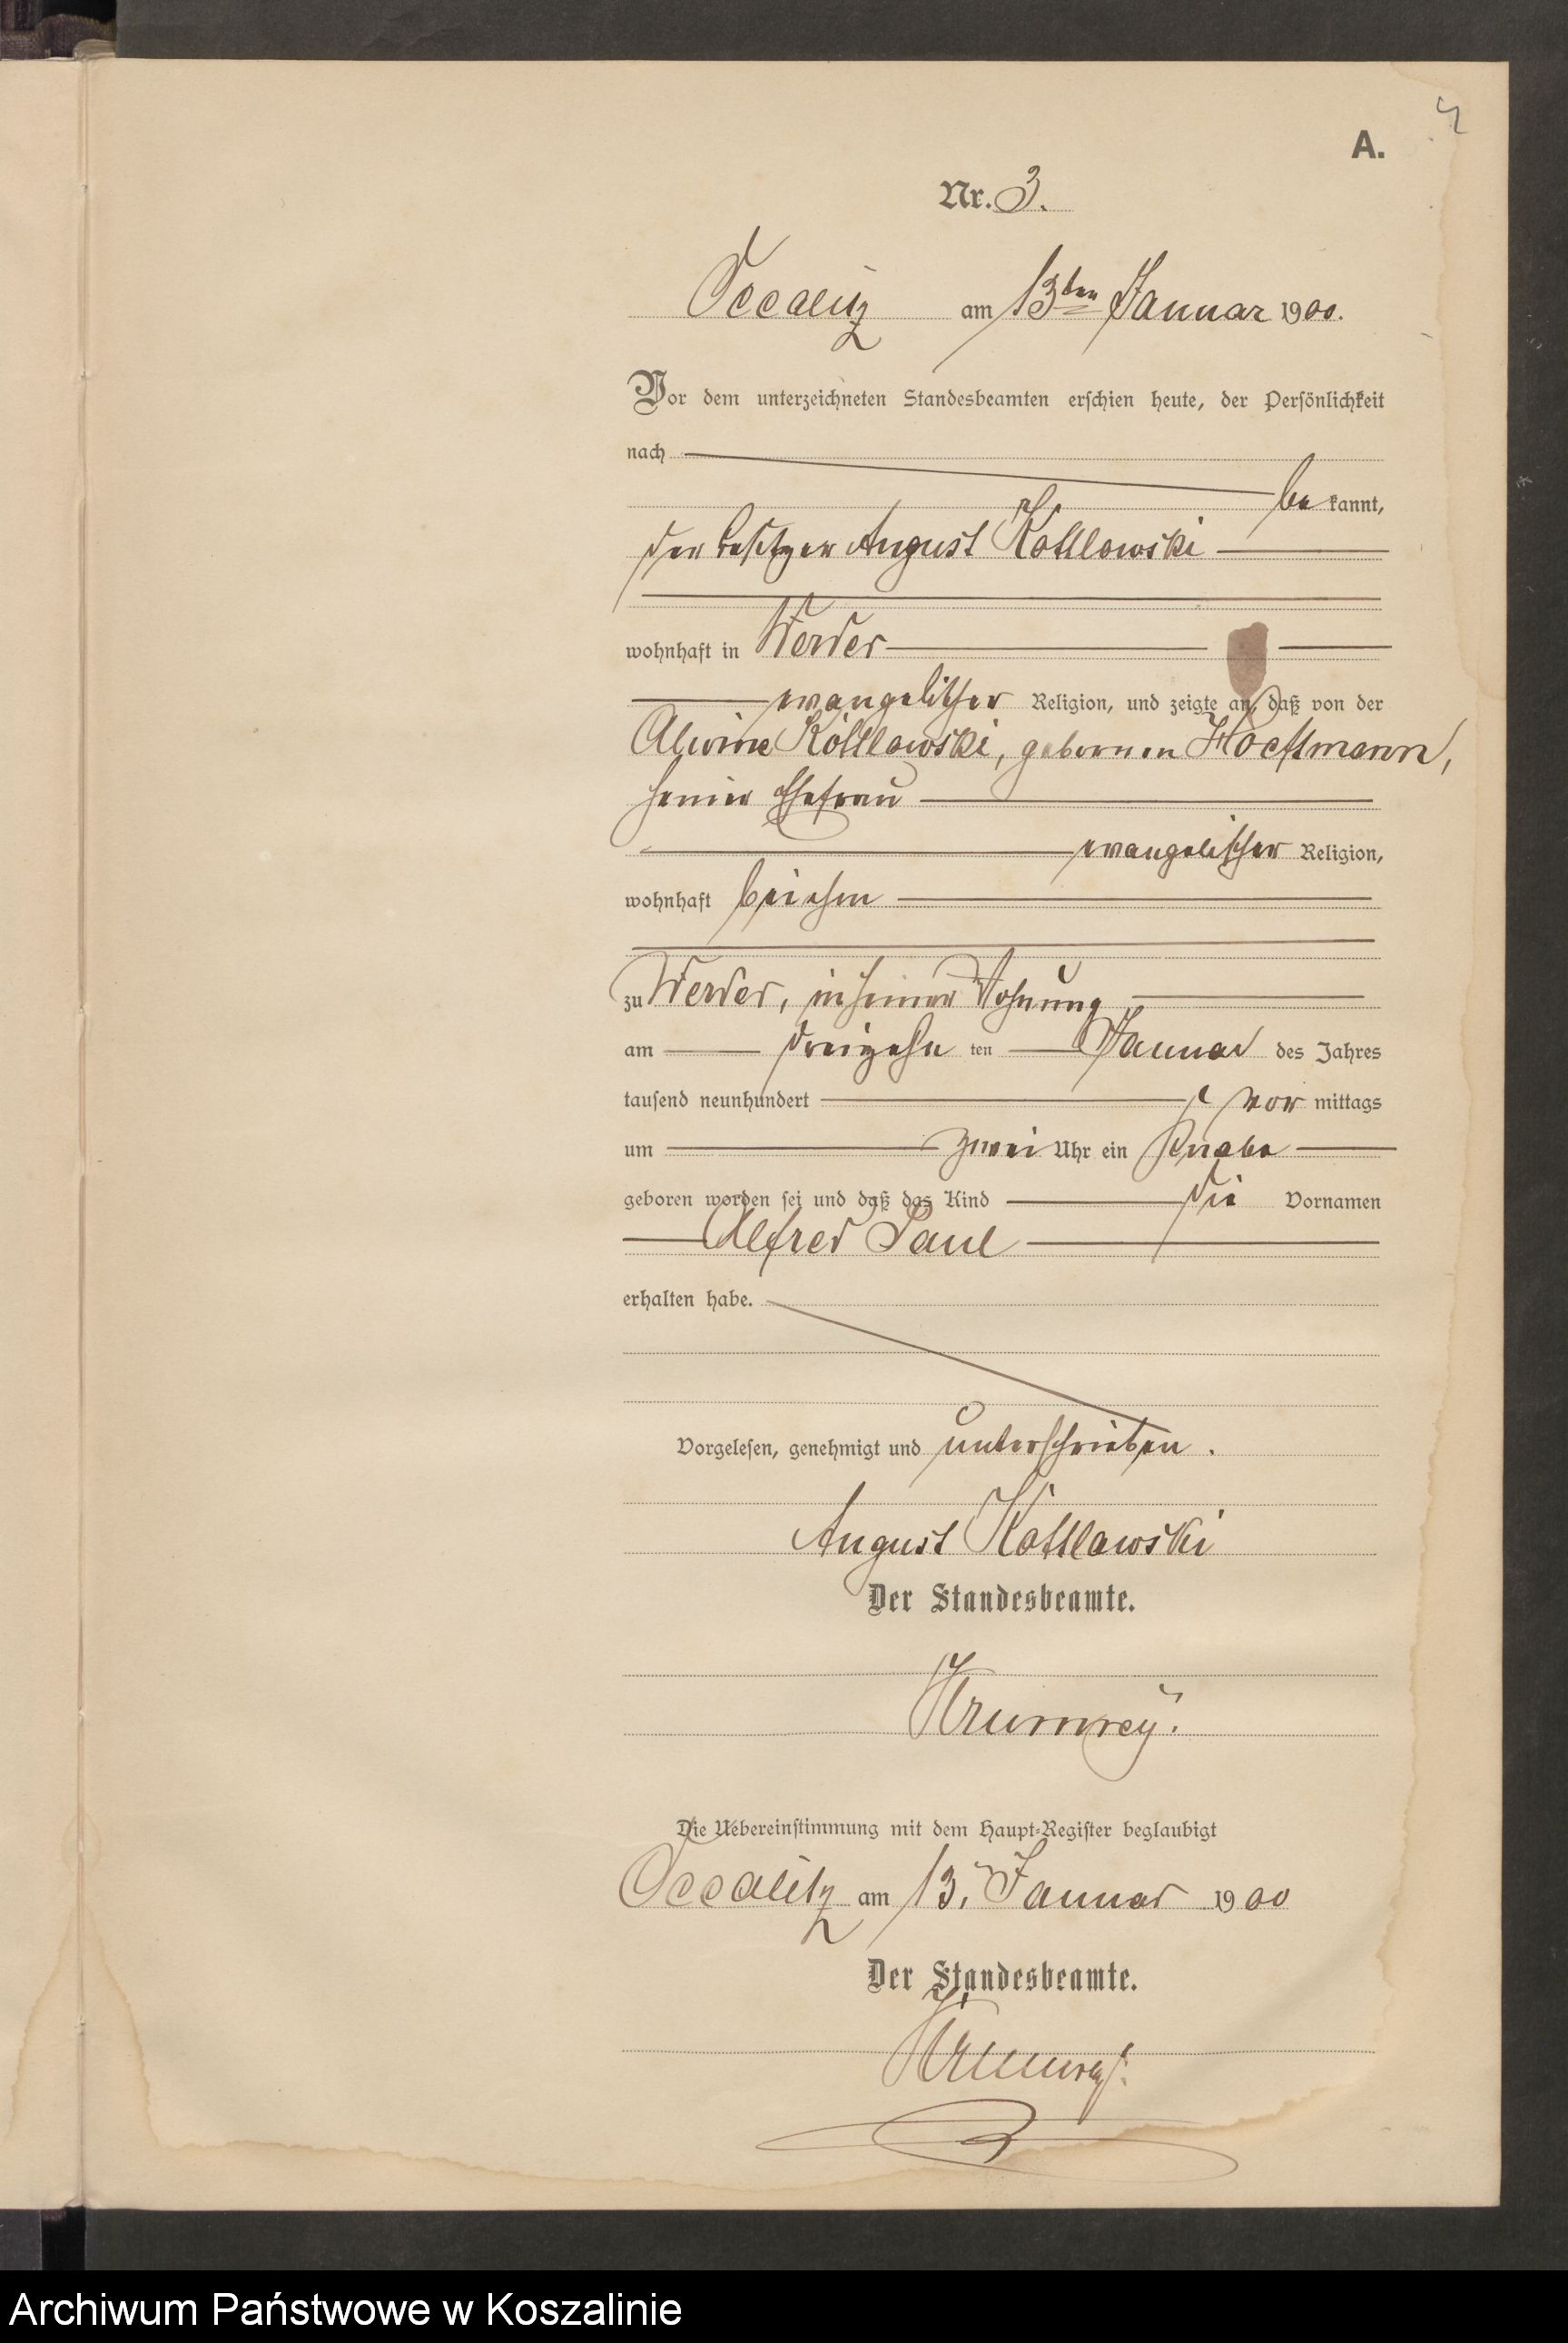 4
A.
Nr. 3.
Occalitz am 13ten Januar 1900.
Vor dem unterzeichneten Standesbeamten erschien heute, der Persönlichkeit
nach
be kannt,
der Besitzer August Kottlowski
wohnhaft in Werder
evangelischer Religion, und zeigte an, daß von der
Alwine Kottlowski, geborenen Hoeftmann,
seiner Ehefrau
evangelischer Religion,
wohnhaft bei ihm
zu Werder, in seiner Wohnung
am dreizehn ten Januar des Jahres
tausend neunhundert vor mittags
um zwei Uhr ein Knabe
geboren worden sei und daß das Kind die Vornamen
Alfred Paul
erhalten habe.
Vorgelesen, genehmigt und unterschrieben.
August Kottlowski
Der Standesbeamte.
Krumrey.
Die Uebereinstimmung mit dem Haupt-Register beglaubigt
Occalitz am 13. Januar 1900
Der Standesbeamte.
Krumrey.
Archiwum Państwowe w Koszalinie